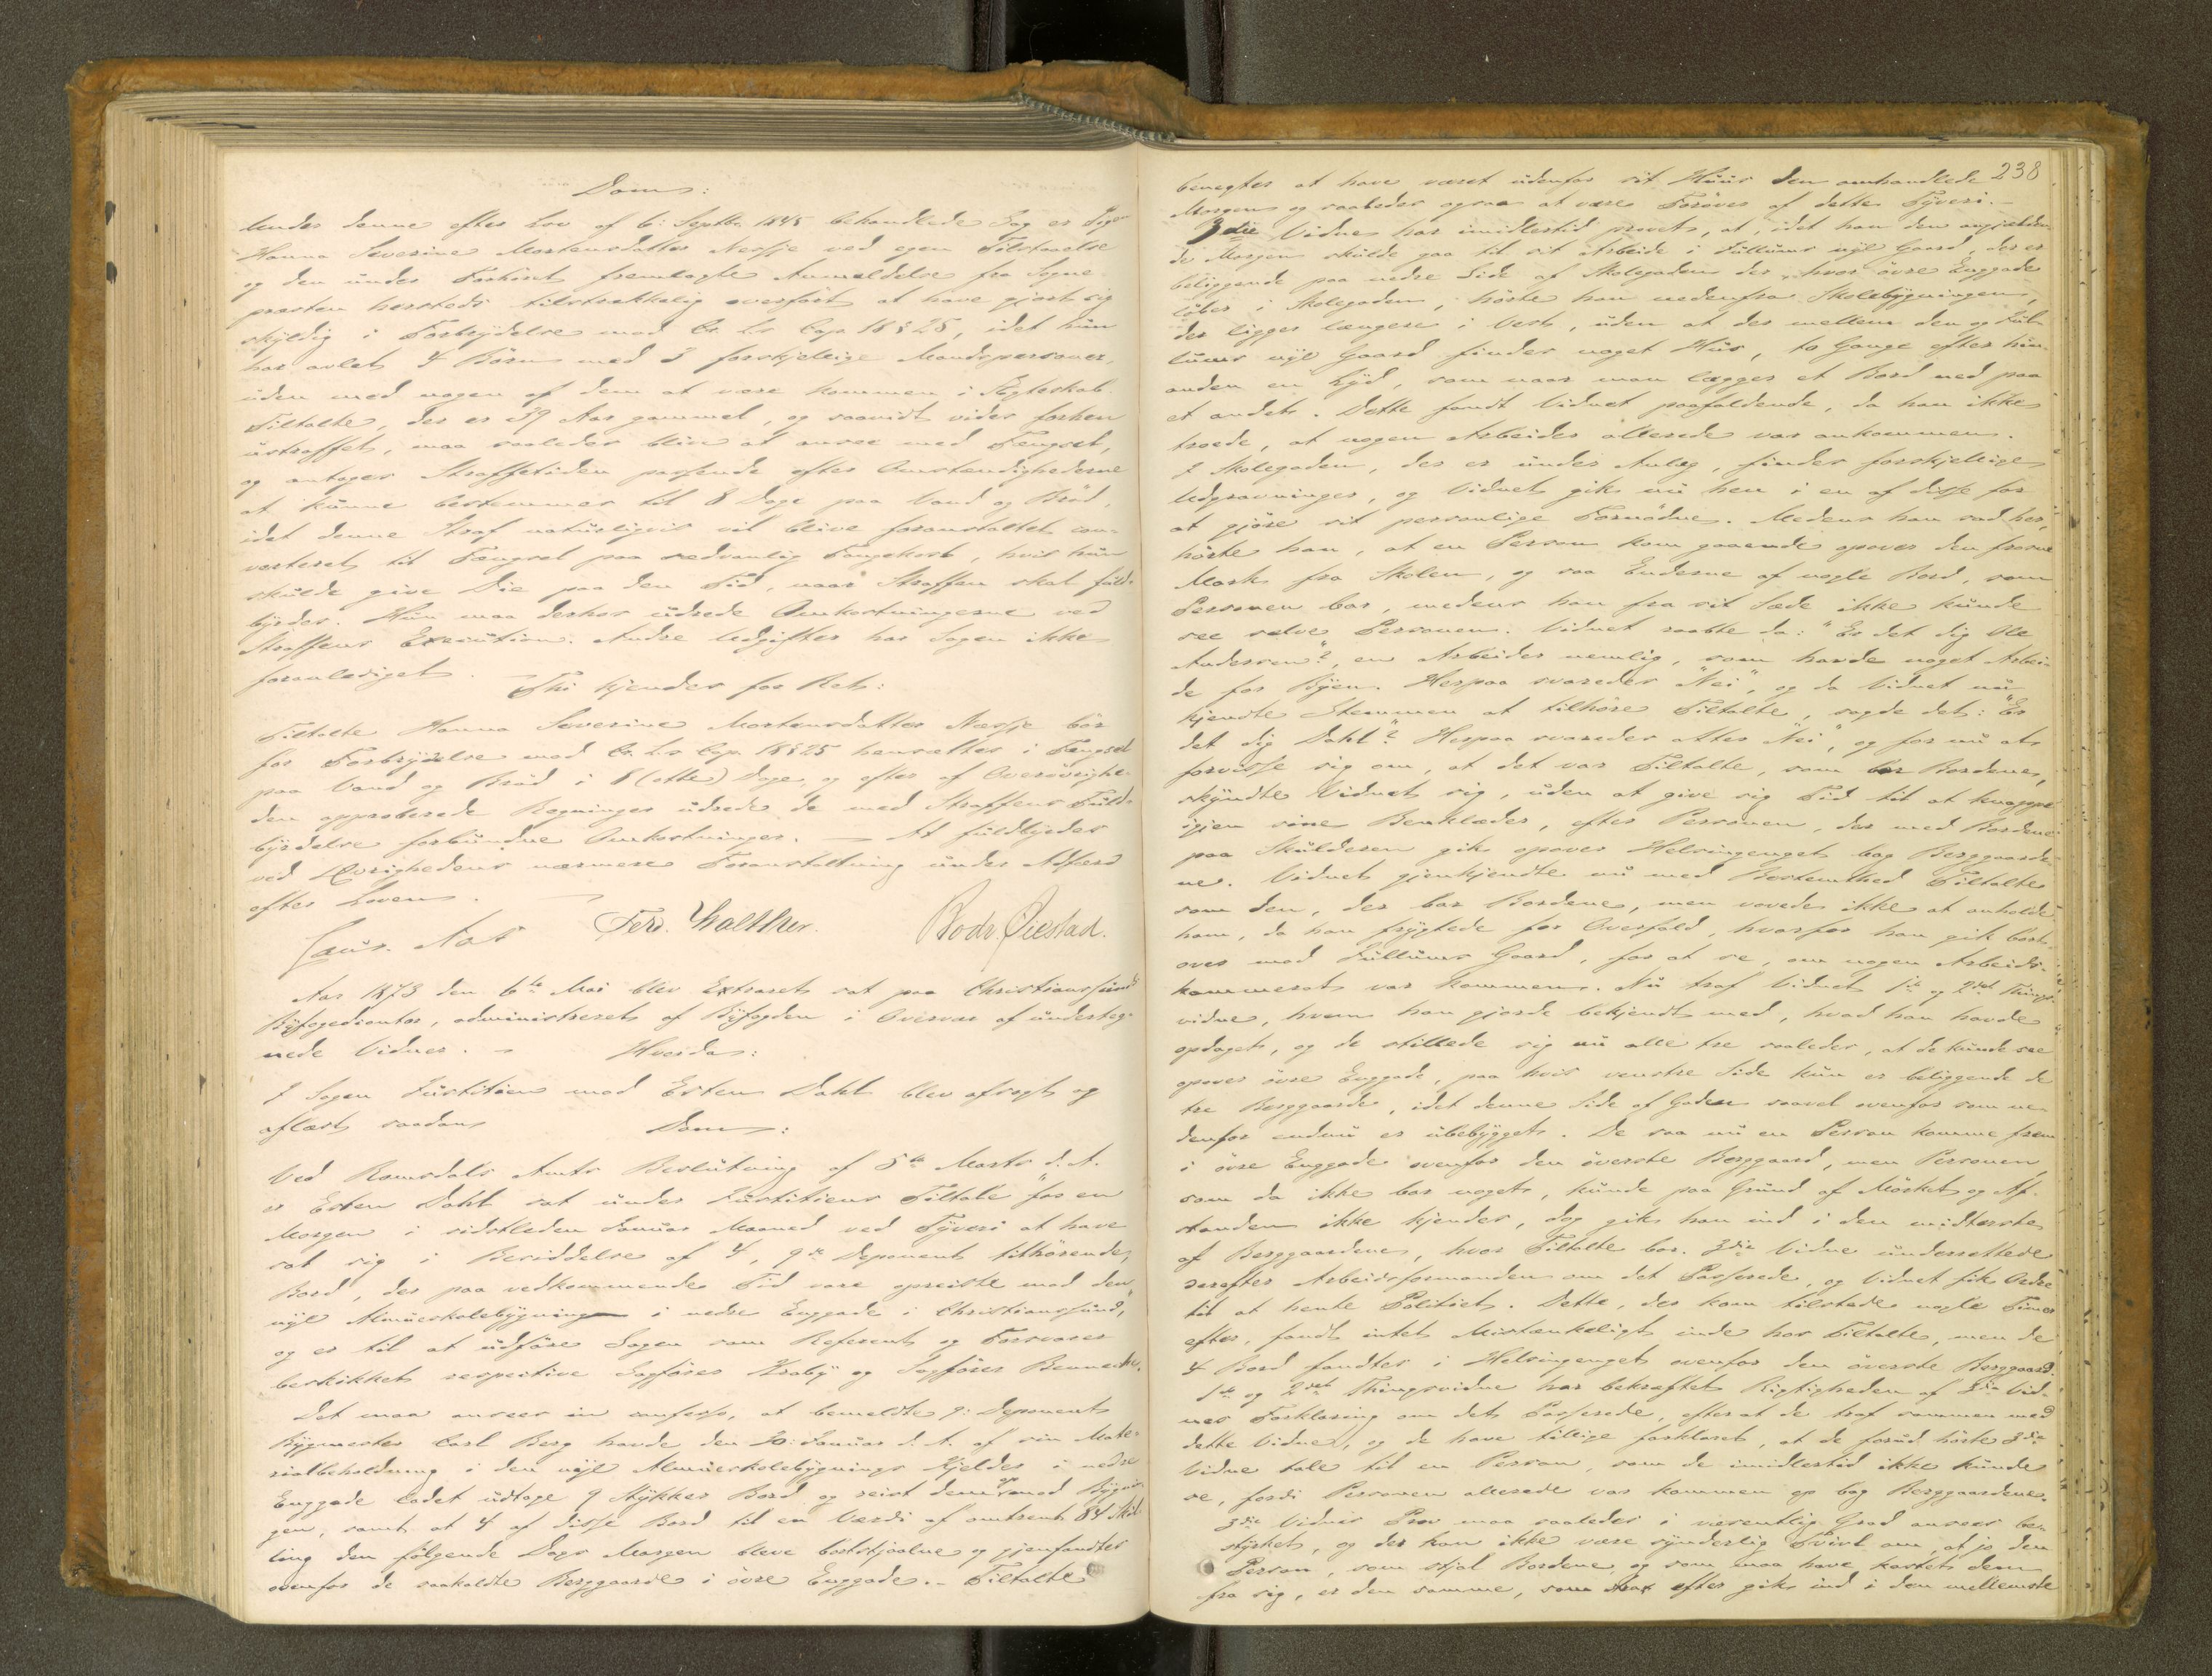 Dom:
Under denne efter Lov af 6. Septbr. 1845 behandlede Sag er Pigen
Hanna Severine Mortensdatter Nessje ved egen Tilstaaelse
og den under Forhöret fremlagte Anmeldelse fra Sogne-
præsten hersteds tilstrækkelig overfört at have gjort sig
skyldig i Forbrydelse mod Cr. Lv. Cap. 18 § 25, idet hun
har avlet 4 Börn med 3 forskjellige Mandspersoner,
uden med nogen af dem at være kommen i Ægteskab.
Tiltalte, der er 39 Aar gammel, og saavidt vides forhen
ustraffet, maa saaledes blive at ansee med Fengsel,
og antages Straffetiden passende efter Omstendighederne
at kunne bestemmes til 8 Dage paa Vand og Bröd,
idet denne Straf naturligvis vil blive foranstaltet con-
verteret til Fængsel paa sedvanlig Fangekost, hvis hun
skulde give Die paa den Tid, naar Straffen skal fuld-
byrdes. Hun maa derhos udrede Omkostningerne ved
Straffens Execution. Andre Udgifter har Sagen ikke
foranlediget.
Thi kjendes for Ret:
Tiltalte Hanna Severine Mortensdatter Nessje bör
for Forbrydelse mod Cr. Lv. Cap. 18 § 25 hensættes i Fængsel
paa Vand og Bröd i 8 (otte) Dage, og efter af Overövrighe-
den approberede Regninger udrede de med Straffens Fuld-
byrdelse forbundne Omkostninger. – At fuldbyrdes
ved Övrighedens nærmere Foranstaltning under Adfærd
efter Loven.
Laur. Aas Fer. Walther. Bodv. Öiestad.
Aar 1873 den 6te Mai blev Extraret sat paa Christianssunds
Byfogedcontor, administreret af Byfogden i Overvær af underteg-
nede Vidner. – Hvorda:
I Sagen Justitien mod Esten Dahl blev afsagt og
aflæst saadan
Dom:
Ved Romsdals Amts Beslutning af 5te Marts d. A.
er Esten Dahl sat under Justitiens Tiltale "for en
Morgen i sidstleden Januar Maaned ved Tyveri at have
sat sig i Besiddelse af 4, 9de Deponent tilhörende,
Bord, der paa vedkommende Tid vare opreiste mod den
nye Almueskolebygning i nedre Enggade i Christianssund,"
og er til at udföre Sagen som Referent og Forsvarer
beskikket respective Sagförer Kraby og Sagförer Bennech.
Det maa ansees in confesso, at bemeldte 9. Deponent
Bygmester Carl Berg havde den 30. Januar d. A. af sin Mate-
rialbeholdning i den nye Almueskolebygnings Kjelder i nedre
Enggade ladet udtage 9 Stykker Bord og reist dem op mod Bygnin-
gen, samt at 4 af disse Bord til en Værdi af omtrent 84 Skil-
ling den fölgende Dags Morgen bleve bortstjaalne og gjenfandtes
ovenfor de saakaldte Berggaarde i övre Enggade. – Tiltalte
238
benegter at have været udenfor sit Huus den omhandlede
Morgen og saaledes ogsaa at være Foröver af dette Tyveri. –
3die Vidne har imidlertid provet, at, idet han den angjælden-
de Morgen skulde gaa til sit Arbeide i Jullums nye Gaard, der er
beliggende paa nedre Side af Skolegaden der, hvor övre Enggade
löber i Skolegaden, hörte han nedenfra Skolebygningen,
der ligger længere i Vest, uden at der mellem den og Jul-
lums nye Gaard findes noget Hus, to Gange efter hin-
anden en Lyd, som naar man lægger et Bord ned paa
et andet. Dette fandt Vidnet paafaldende, da han ikke
troede, at nogen Arbeider allerede var ankommen.
I Skolegaden, der er under Anlæg, findes forskjellige
Udgravninger, og Vidnet gik nu hen i en af disse for
at gjöre sit personlige Fornödne. Medens han sad her,
hörte han, at en Person kom gaaende opover den frosne
Mark fra Skolen, og saa Enderne af nogle Bord, som
Personen bar, medens han fra sit Sæde ikke kunde
see selve Personen. Vidnet raabte da: "Er det dig Ole
Andersen"?, en Arbeider nemlig, som havde noget Arbei-
de for Byen. Herpaa svaredes "Nei", og da Vidnet nu
kjendte Stemmen at tilhöre Tiltalte, sagde det: "Er
det dig Dahl"? Herpaa svaredes atter "Nei", og for nu at
forvisse sig om, at det var Tiltalte, som bar Bordene,
skyndte Vidnet sig, uden at give sig Tid til at knappe
igjen sine Benklæder, efter Personen, der med Bordene
paa Skulderen gik opover Helsingenget bag Berggaarde-
ne. Vidnet gjenkjendte nu med Bestemthed Tiltalte
som den, der bar Bordene, men vovede ikke at anholde
ham, da han frygtede for Overfald, hvorfor han gik bort-
over mod Jullums Gaard, for at se, om nogen Arbeids-
kammerat var kommen. Nu traf Vidnet 1ste og 2det Things-
vidne, hvem han gjorde bekjendt med, hvad han havde
opdaget, og de stillede sig nu alle tre saaledes, at de kunde see
opover övre Enggade, paa hvis venstre Side kun er beliggende de
tre Berggaarde, idet denne Side af Gaden saavel ovenfor som ne-
denfor endnu er ubebygget. De saa nu en Person komme frem
i övre Enggade ovenfor den överste Berggaard, men Personen,
som da ikke bar noget, kunde paa Grund af Mörket og Af-
standen ikke kjendes, dog gik han ind i den midterste
af Berggaardene, hvor Tiltalte bor. 3die Vidne underrettede
derefter Arbeidsformanden om det Passerede, og Vidnet fik Ordre
til at hente Politiet. Dette, der kom tilstede nogle Timer
efter, fandt intet Mistænkeligt inde hos Tiltalte, men de
4 Bord fandtes i Helsingenget ovenfor den överste Berggaard.
1ste og 2det Thingsvidne har bekræftet Rigtigheden af 3die Vid-
nes Forklaring om det Passerede, efterat de traf sammen med
dette Vidne, og de have tillige forklaret, at de forud hörte 3die
Vidne tale til en Person, som de imidlertid ikke kunde
se, fordi Personen allerede var kommen op bag Berggaardene.
3die Vidnes Prov maa saaledes i væsentlig Grad ansees be-
styrket, og der kan ikke være synderlig Tvivl om, at jo den
Person, som stjal Bordene, og som maa have kastet dem
fra sig, er den samme, som strax efter gik ind i den mellemste